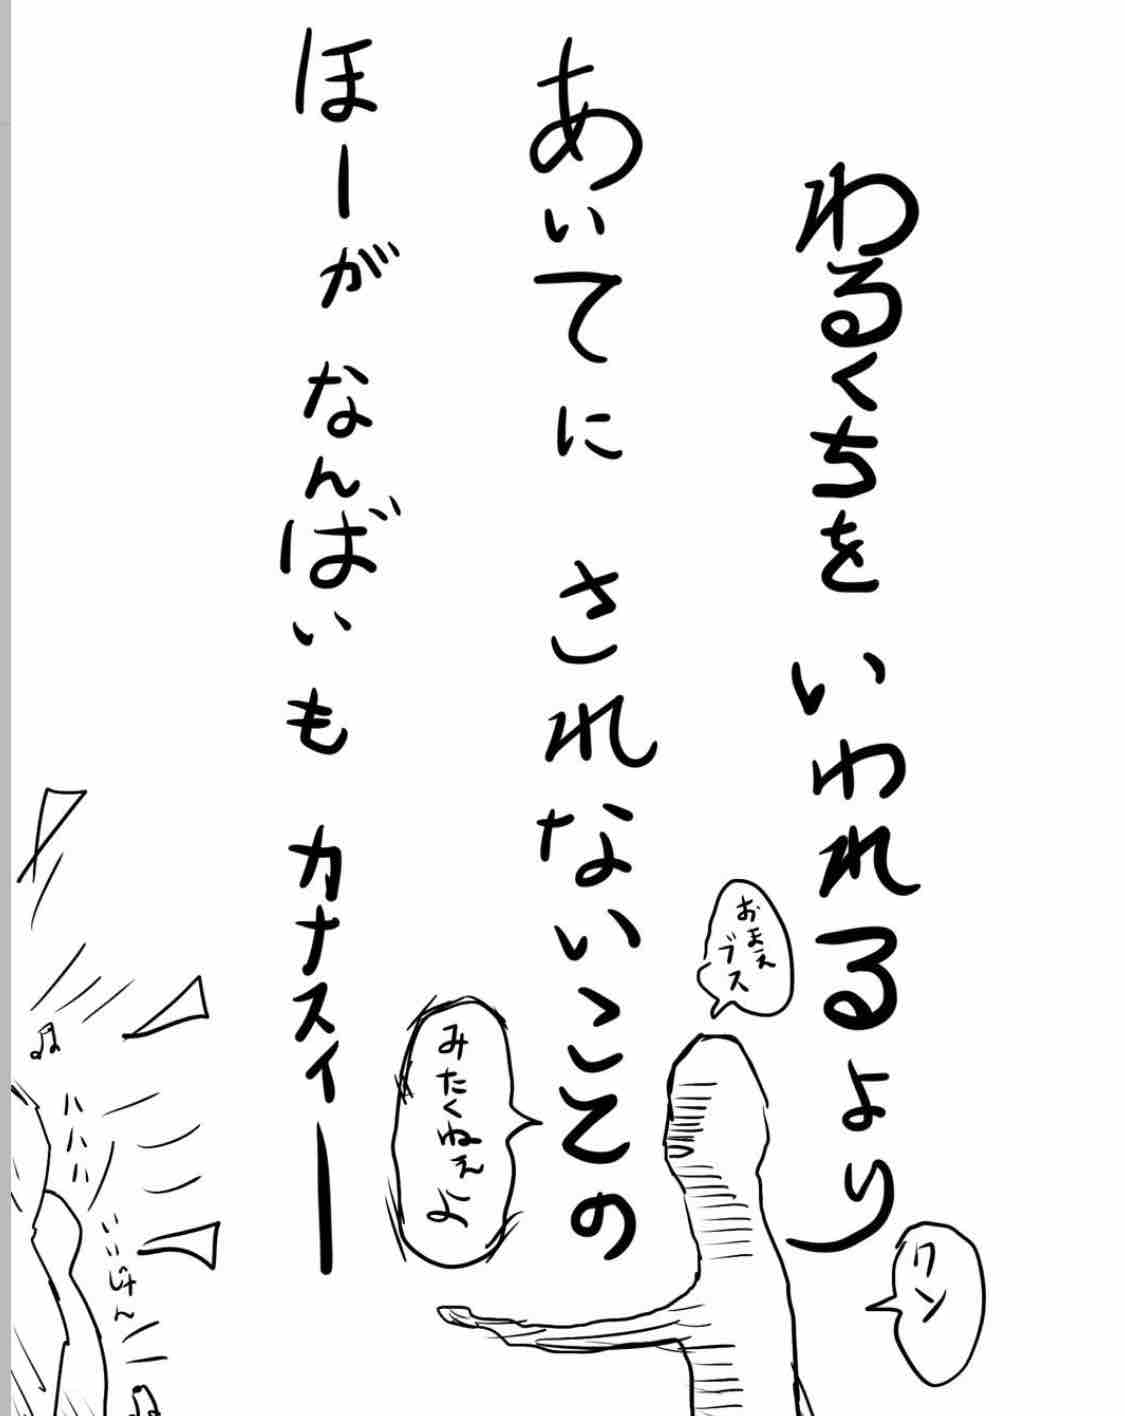 わるくちを いわれるより
あいてに されないことの
ほーが なんばいも カナスィー
おまえ
ブス
みたくねぇよ
ワン
じゃん